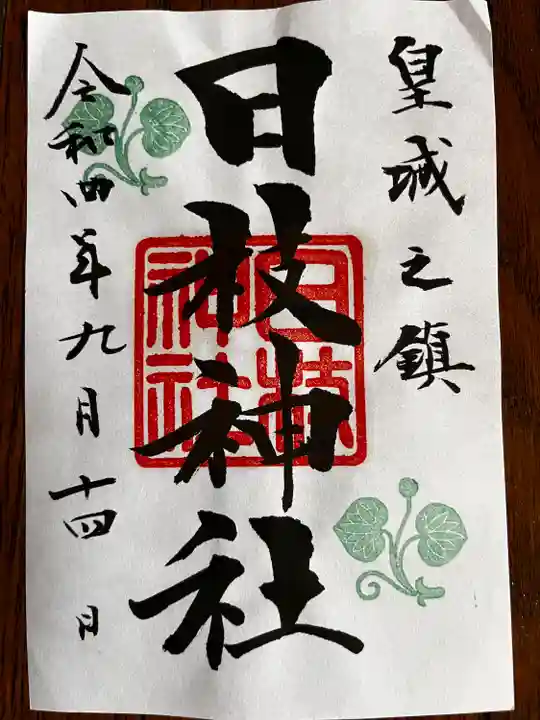 皇城之鎮
日枝神社
日枝
神社
令和四年九月十四日